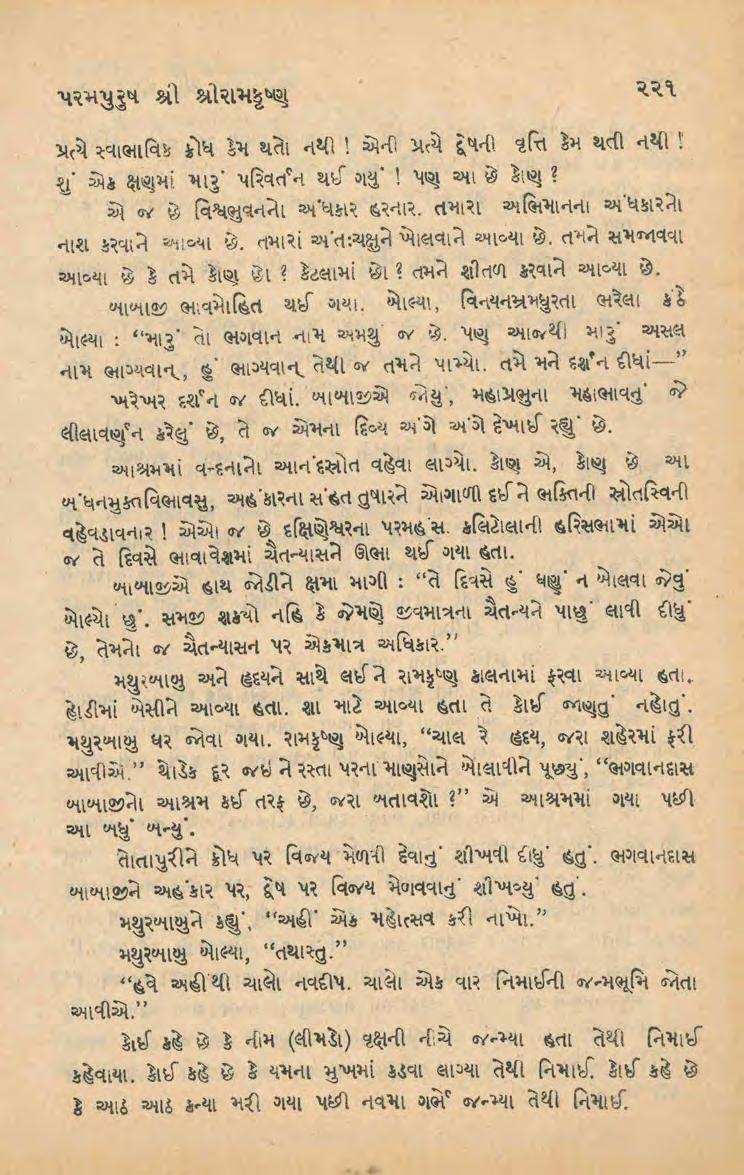 પરમપુરુષ શ્રી શ્રીરામકૃષ્ણ
૨૨૧
પ્રત્યે સ્વાભાવિક ક્રોધ કેમ થતો નથી ! એની પ્રત્યે દ્વેષની વૃત્તિ કેમ થતી નથી !
શું એક ક્ષણમાં મારું પરિવર્તન થઈ ગયું ! પણ આ છે કોણ ?
એ જ છે વિશ્વભુવનનો અંધકાર હરનાર. તમારા અભિમાનના અંધકારનો
નાશ કરવાને આવ્યા છે. તમારાં અંતઃચક્ષુને ખોલવાને આવ્યા છે. તમને સમજાવવા
આવ્યા છે કે તમે કોણ છો ? કેટલામાં છો ? તમને શીતળ કરવાને આવ્યા છે.
બાબાજી ભાવમોહિત થઈ ગયા. બોલ્યા, વિનયનમ્રમધુરતા ભરેલા કંઠે
બોલ્યા : “મારું તો ભગવાન નામ અમથુ જ છે. પણ આજથી મારું અસલ
નામ ભાગ્યવાન્, હું ભાગ્યવાન્ તેથી જ તમને પામ્યો. તમે મને દર્શન દીધાં—”
ખરેખર દર્શન જ દીધાં. બાબાજીએ જોયું, મહાપ્રભુના મહાભાવનું જે
લીલાવર્ણન કરેલું છે, તે જ એમના દિવ્ય અંગે અંગે દેખાઈ રહ્યું છે.
આશ્રમમાં વન્દનાનો આનંદસ્રોત વહેવા લાગ્યો. કોણ એ, કોણ છે આ
બંધનમુક્તવિભાવસુ, અહંકારના સંહત તુષારને ઓગાળી દઈને ભક્તિની સ્રોતસ્વિની
વહેવડાવનાર ! એઓ જ છે દક્ષિણેશ્વરના પરમહંસ. કલિટોલાની હરિસભામાં એઓ
જ તે દિવસે ભાવાવેશમાં ચૈતન્યાસને ઊભા થઈ ગયા હતા.
બાબાજીએ હાથ જોડીને ક્ષમા માગી : “તે દિવસે હું ઘણું ન બોલવા જેવું
બોલ્યો છું. સમજી શક્યો નહિ કે જેમણે જીવમાત્રના ચૈતન્યને પાછું લાવી દીધું
છે, તેમનો જ ચૈતન્યાસન પર એકમાત્ર અધિકાર.”
મથુરબાબુ અને હૃદયને સાથે લઈને રામકૃષ્ણ કાલનામાં ફરવા આવ્યા હતા.
હોડીમાં બેસીને આવ્યા હતા. શા માટે આવ્યા હતા તે કોઈ જાણતું નહોતું.
મથુરબાબુ ઘર જોવા ગયા. રામકૃષ્ણ બોલ્યા, “ચાલ રે હૃદય, જરા શહેરમાં ફરી
આવીએ.” થોડેક દૂર જઇને રસ્તા પરના માણસોને બોલાવીને પૂછ્યું, “ભગવાનદાસ
બાબાજીનો આશ્રમ કઈ તરફ છે, જરા બતાવશો ?” એ આશ્રમમાં ગયા પછી
આ બધું બન્યું.
તોતાપુરીને ક્રોધ પર વિજય મેળવી દેવાનું શીખવી દીધું હતું. ભગવાનદાસ
બાબાજીને અહંકાર પર, દ્વેષ પર વિજય મેળવવાનું શીખવ્યું હતું.
મથુરબાબુને કહ્યું, “અહીં એક મહોત્સવ કરી નાખો.”
મથુરબાબુ બોલ્યા, “તથાસ્તુ.”
“હવે અહીંથી ચાલો નવદીપ. ચાલો એક વાર નિમાઈની જન્મભૂમિ જોતા
આવીએ.”
કોઈ કહે છે કે નીમ (લીમડો) વૃક્ષની નીચે જન્મ્યા હતા તેથી નિમાઈ
કહેવાયા. કોઈ કહે છે કે યમના મુખમાં કડવા લાગ્યા તેથી નિમાઈ. કોઈ કહે છે
કે આઠ આઠ કન્યા મરી ગયા પછી નવમા ગર્ભે જન્મ્યા તેથી નિમાઈ.